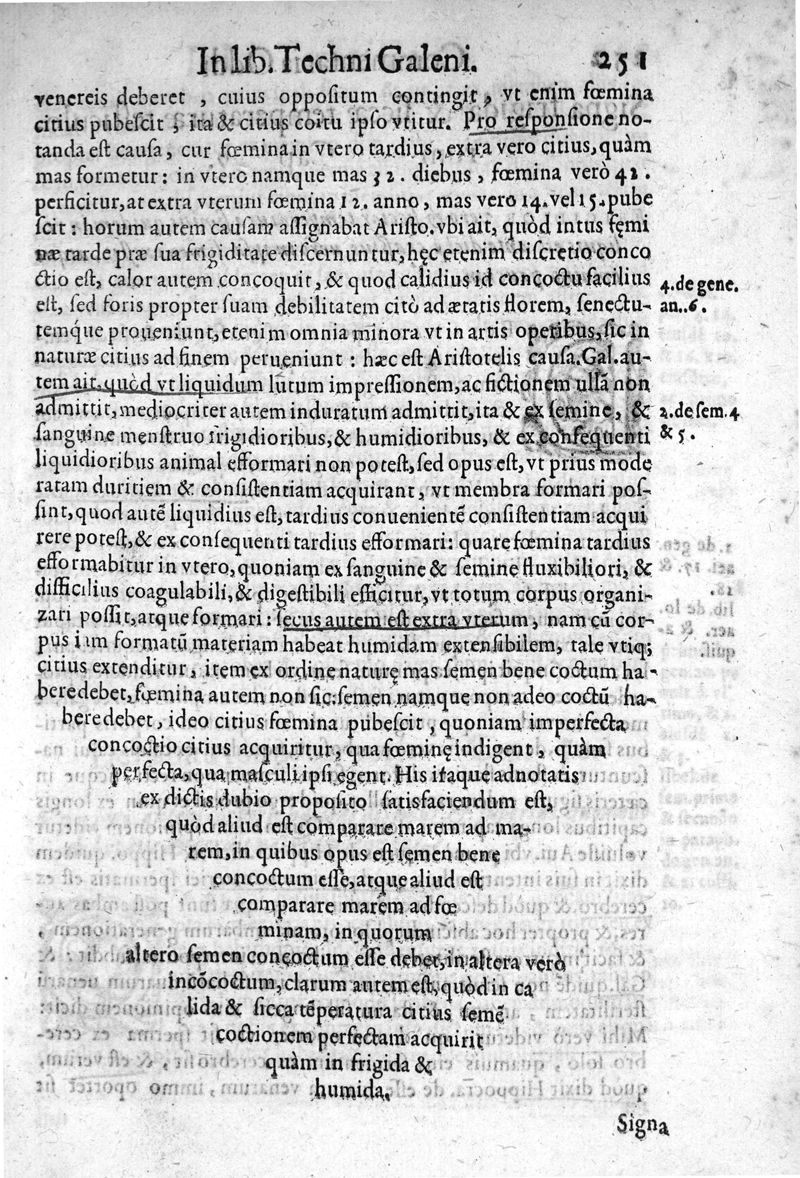 In lib. Techni Galeni. 251
venereis deberet , cuius oppositum contingit , vt enim fœmina
citius pubescit , ita & citius coitu ipso vtitur. Pro responsione no-
tanda est causa, cur fœmina in vtero tardius, extra vero citius, quàm
mas formetur: in vtero namque mas 32. diebus, fœmina verò 42.
perficitur, at extra vterum fœmina 12. anno, mas vero 14. vel 15. pube
scit: horum autem causam assignabat Aristo. vbi ait, quòd intus fęmi
næ tarde præ sua frigiditate discernuntur, hęc etenim discretio conco
ctio est, calor autem concoquit, & quod calidius id concoctu facilius
est, sed foris propter suam debilitatem citò ad ætatis florem, senectu-
temq́ue proueniunt, etenim omnia minora vt in artis operibus, sic in
naturæ citius ad finem perueniunt: hæc est Aristotelis causa. Gal. au-
tem ait, quòd vt liquidum lutum impressionem, ac fictionem ullã non
admittit, mediocriter autem induratum admittit, ita & ex semine, &
sanguine menstruo frigidioribus, & humidioribus, & ex consequenti
liquidioribus animal efformari non potest, sed opus est, vt prius mode
ratam duritiem & consistentiam acquirant, vt membra formari pos-
sint, quod autẽ liquidius est, tardius conuenientẽ consistentiam acqui
rere potest, & ex consequenti tardius efformari: quare fœmina tardius
efformabitur in vtero, quoniam ex sanguine & semine fluxibiliori, &
difficilius coagulabili, & digestibili efficitur, vt totum corpus organi-
zari possit, atque formari: secus autem est extra vterum, nam cũ cor-
pus iam formatũ materiam habeat humidam extensibilem, tale vtiq;
citius extenditur, item ex ordine naturę mas semen bene coctum ha-
bere debet, fœmina autem non sic: semen namque non adeo coctũ ha-
bere debet, ideo citius fœmina pubescit, quoniam imperfecta
concoctio citius acquiritur, qua fœminę indigent, quàm
perfecta, qua masculi ipsi egent. His itaque adnotatis
ex dictis dubio proposito satisfaciendum est,
quòd aliud est comparare marem ad ma-
rem, in quibus opus est semen bene
concoctum esse, atque aliud est
comparare marem ad fœ
minam, in quorum
altero semen concoctum esse debet, in altera verò
incõcoctum, clarum autem est, quòd in ca
lida & sicca tẽperatura citius semẽ
coctionem perfectam acquirit
quàm in frigida &
humida.
4. de gene.
an.. 6.
2. de sem. 4
& 5.
Signa